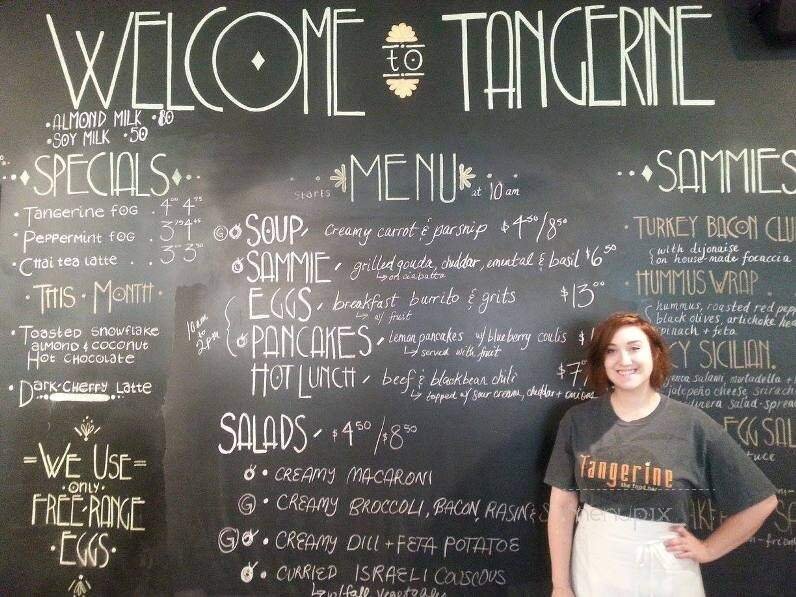 WELCOME to TANGERINE
• ALMOND MILK • 80
• SOY MILK • 50
SPECIALS
• Tangerine FOG . 4⁰⁰ 4⁷⁵
• Peppermint FOG .
• Chai tea latte .
THIS • MONTH •
• Toasted Snowflake
almond & coconut
Hot Chocolate
• Dark-Cherry Latte
WE USE
• ONLY •
FREE-RANGE
• EGGS •
MENU
starts at 10 am
G SOUP, creamy carrot & parsnip $4⁵⁰/8⁵⁰
SAMMIE, grilled gouda, cheddar, emental & basil $6⁵⁰
↳ on ciabatta
EGGS, breakfast burrito & grits $13⁰⁰
↳ w/ fruit
10am to 2pm
PANCAKES, lemon pancakes w/ blueberry coulis $
↳ served with fruit
HOT LUNCH, beef & blackbean chili $7
↳ topped w/ sour cream, cheddar + onions
SALADS $4⁵⁰/8⁵⁰
• CREAMY MACARONI
G • CREAMY BROCCOLI, BACON, RASIN & S
G • CREAMY DILL + FETA POTATOE
• CURRIED ISRAELI COUSCOUS
↳ w/ fall vegetables
SAMMIES
• TURKEY BACON CLU
with dijonaise
on house-made focaccia
• HUMMUS WRAP
hummus, roasted red pepp
black olives, artichoke hea
spinach + feta
CY SICILIAN.
salami, mortadella +
jalepeño cheese, srirach
salad-sprea
EGG SAL
tuce
Tangerine
the food bar
menupix